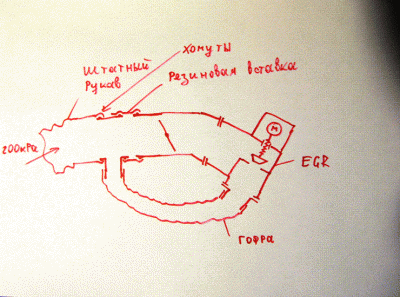 хомуты
штатный
рукав
Резиновая вставка
200кPa
M
EGR
гофра